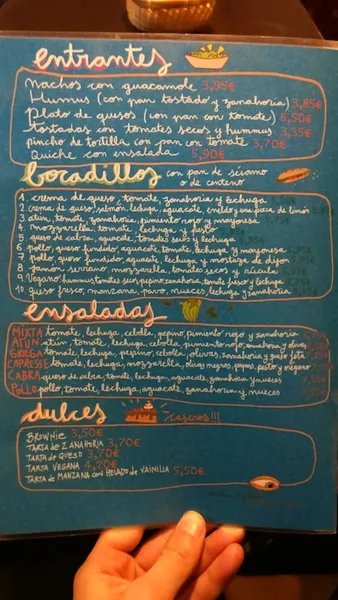 entrantes
Nachos con guacamole 3,95€
Humus (con pan tostado y zanahoria) 3,85€
Plato de quesos (con pan con tomate) 6,50€
tostadas con tomates secos y hummus 3,35€
pincho de tortilla con pan con tomate 3,70€
Quiche con ensalada 5,90€
bocadillos con pan de sésamo
o de centeno
1. crema de queso, tomate, zanahoria y lechuga
2. crema de queso, salmón, lechuga, aguacate, eneldo y
3. atún, tomate, zanahoria, pimiento rojo y mayonesa
4. mozzarella, tomate, lechuga y pesto
5. queso de cabra, aguacate, tomates secos y lechuga
6. pollo, queso fundido, aguacate, tomate, lechuga y mayonesa
7. pollo, queso fundido, aguacate, lechuga y mostaza de dijon
8. jamón serrano, mozzarella, tomates secos y rúcula
9. Vegano hummus, tomates secos, pepino, zanahoria, tomate fresco y lechuga
10. queso fresco, manzana, pavo, nueces, lechuga y zanahoria
ensaladas
MIXTA tomate, lechuga, cebolla, pepino, pimiento rojo y zanahoria
ATÚN atún, tomate, lechuga, cebolla, pimiento rojo, zanahoria y olivas
GRIEGA tomate, lechuga, pepino, cebolla, olivas, zanahoria y queso feta
CAPRESSE tomate, lechuga, mozzarella, olivas negras, pipas, pesto y orégano
CABRA queso de cabra, tomate, lechuga, aguacate, zanahoria y nueces
POLLO pollo, tomate, lechuga, aguacate, zanahoria y nueces
dulces caseros!!!
BROWNIE 3,50€
TARTA DE ZANAHORIA 3,70€
TARTA DE QUESO 3,70€
TARTA VEGANA 4,20€
TARTA DE MANZANA CON HELADO DE VAINILLA 5,50€